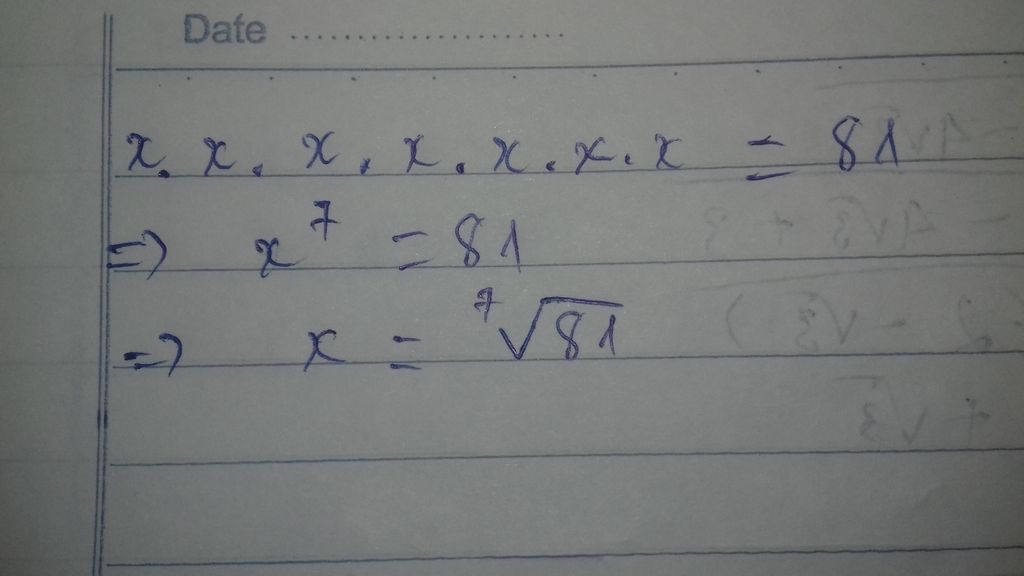 Date .......................
x . x . x . x . x . x . x = 81
=> x⁷ = 81
=> x = ⁷√81